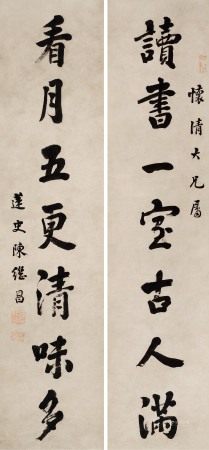 懷清大兄屬
讀書一室古人滿
看月五更清味多
蓮史陳繼昌